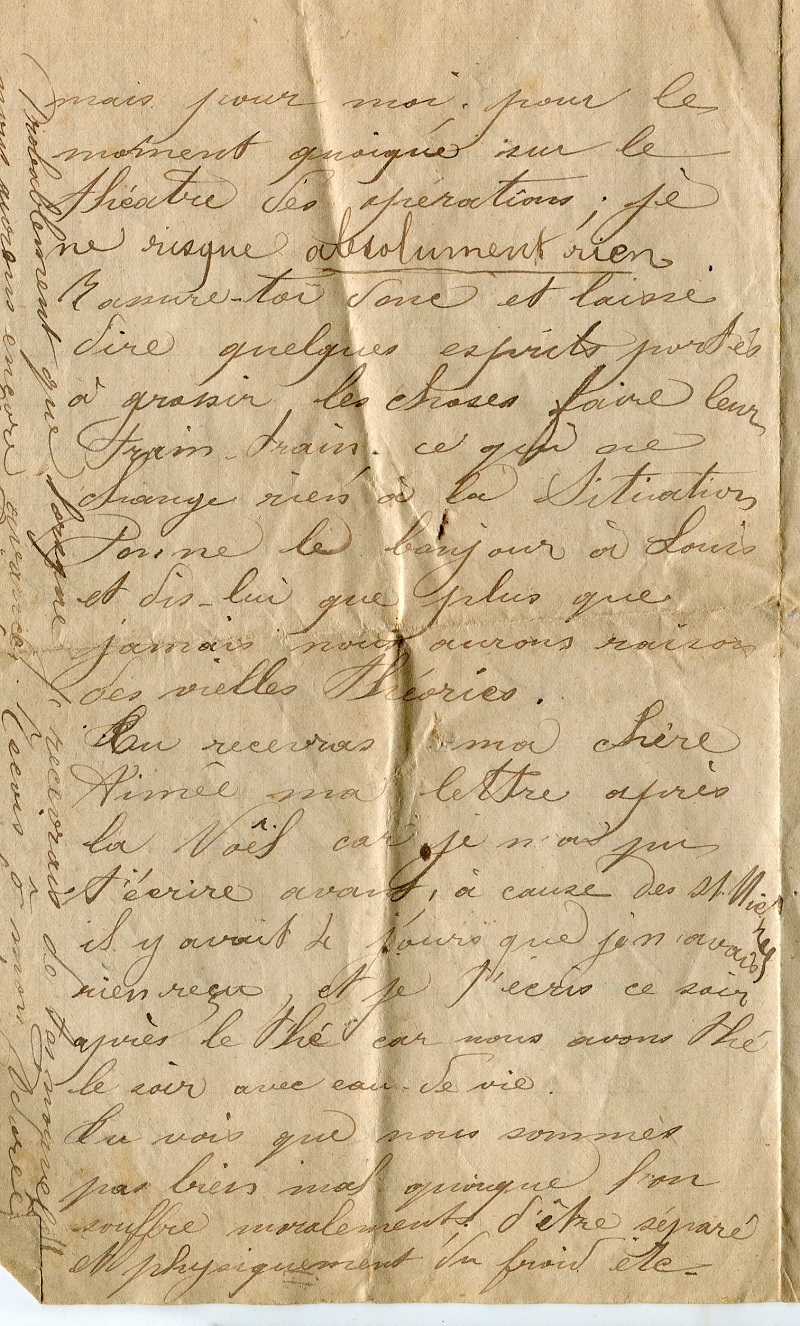 mais pour moi. pour le
moment quoique sur le
théatre des opérations, je
ne risque absolument rien
Rassure-toi donc et laisse
dire quelques esprits portés
à grossir les choses faire leur
train-train. ce qui ne
change rien à la Situation
Donne le bonjour à Louis
et dis-lui que plus que
jamais nous aurons raison
des vielles Théories.
Tu recevras ma chère
Aimée ma lettre après
la Noël car je n'ai pu
t'écrire avant, à cause des
il y avait 4 jours que je n'avais
rien reçu, et je t'écris ce soir
après le thé car nous avons thé
le soir avec eau-de vie.
Tu vois que nous sommes
pas bien mal quoique l'on
souffre moralement d'être séparé
et physiquement du froid etc-
Probablement que lorsque tu recevras de tes nouvelles
nous aurons encore avancé. Reçois ô mon Adorée